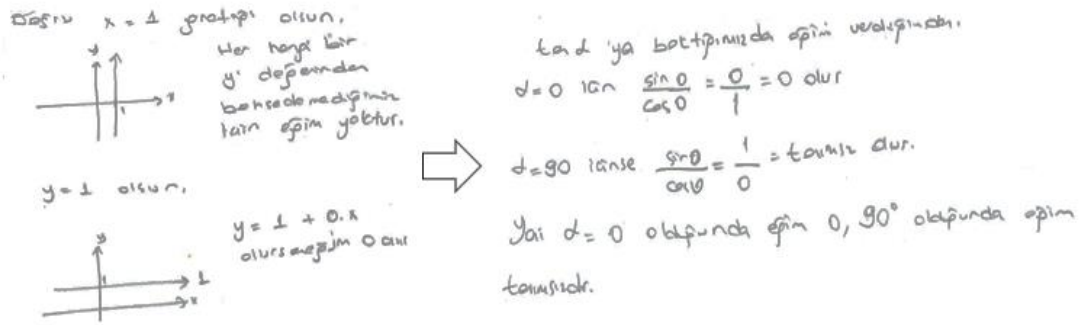 Doğru x = 1 grafiği olsun.
y
x
1
Her hangi bir
y' değerinden
bahsedemediğimiz
için eğim yoktur.
y = 1 olsun.
y
1
1
x
y = 1 + 0.x
olursa eğim 0 olur
tan α 'ya baktığımızda eğim verdiğinden.
α=0 için sin 0 / cos 0 = 0 / 1 = 0 olur
α=90 içinse sinθ / cosθ = 1 / 0 = tanımsız olur.
Yai α = 0 olduğunda eğim 0, 90° olduğunda eğim
tanımsızdır.